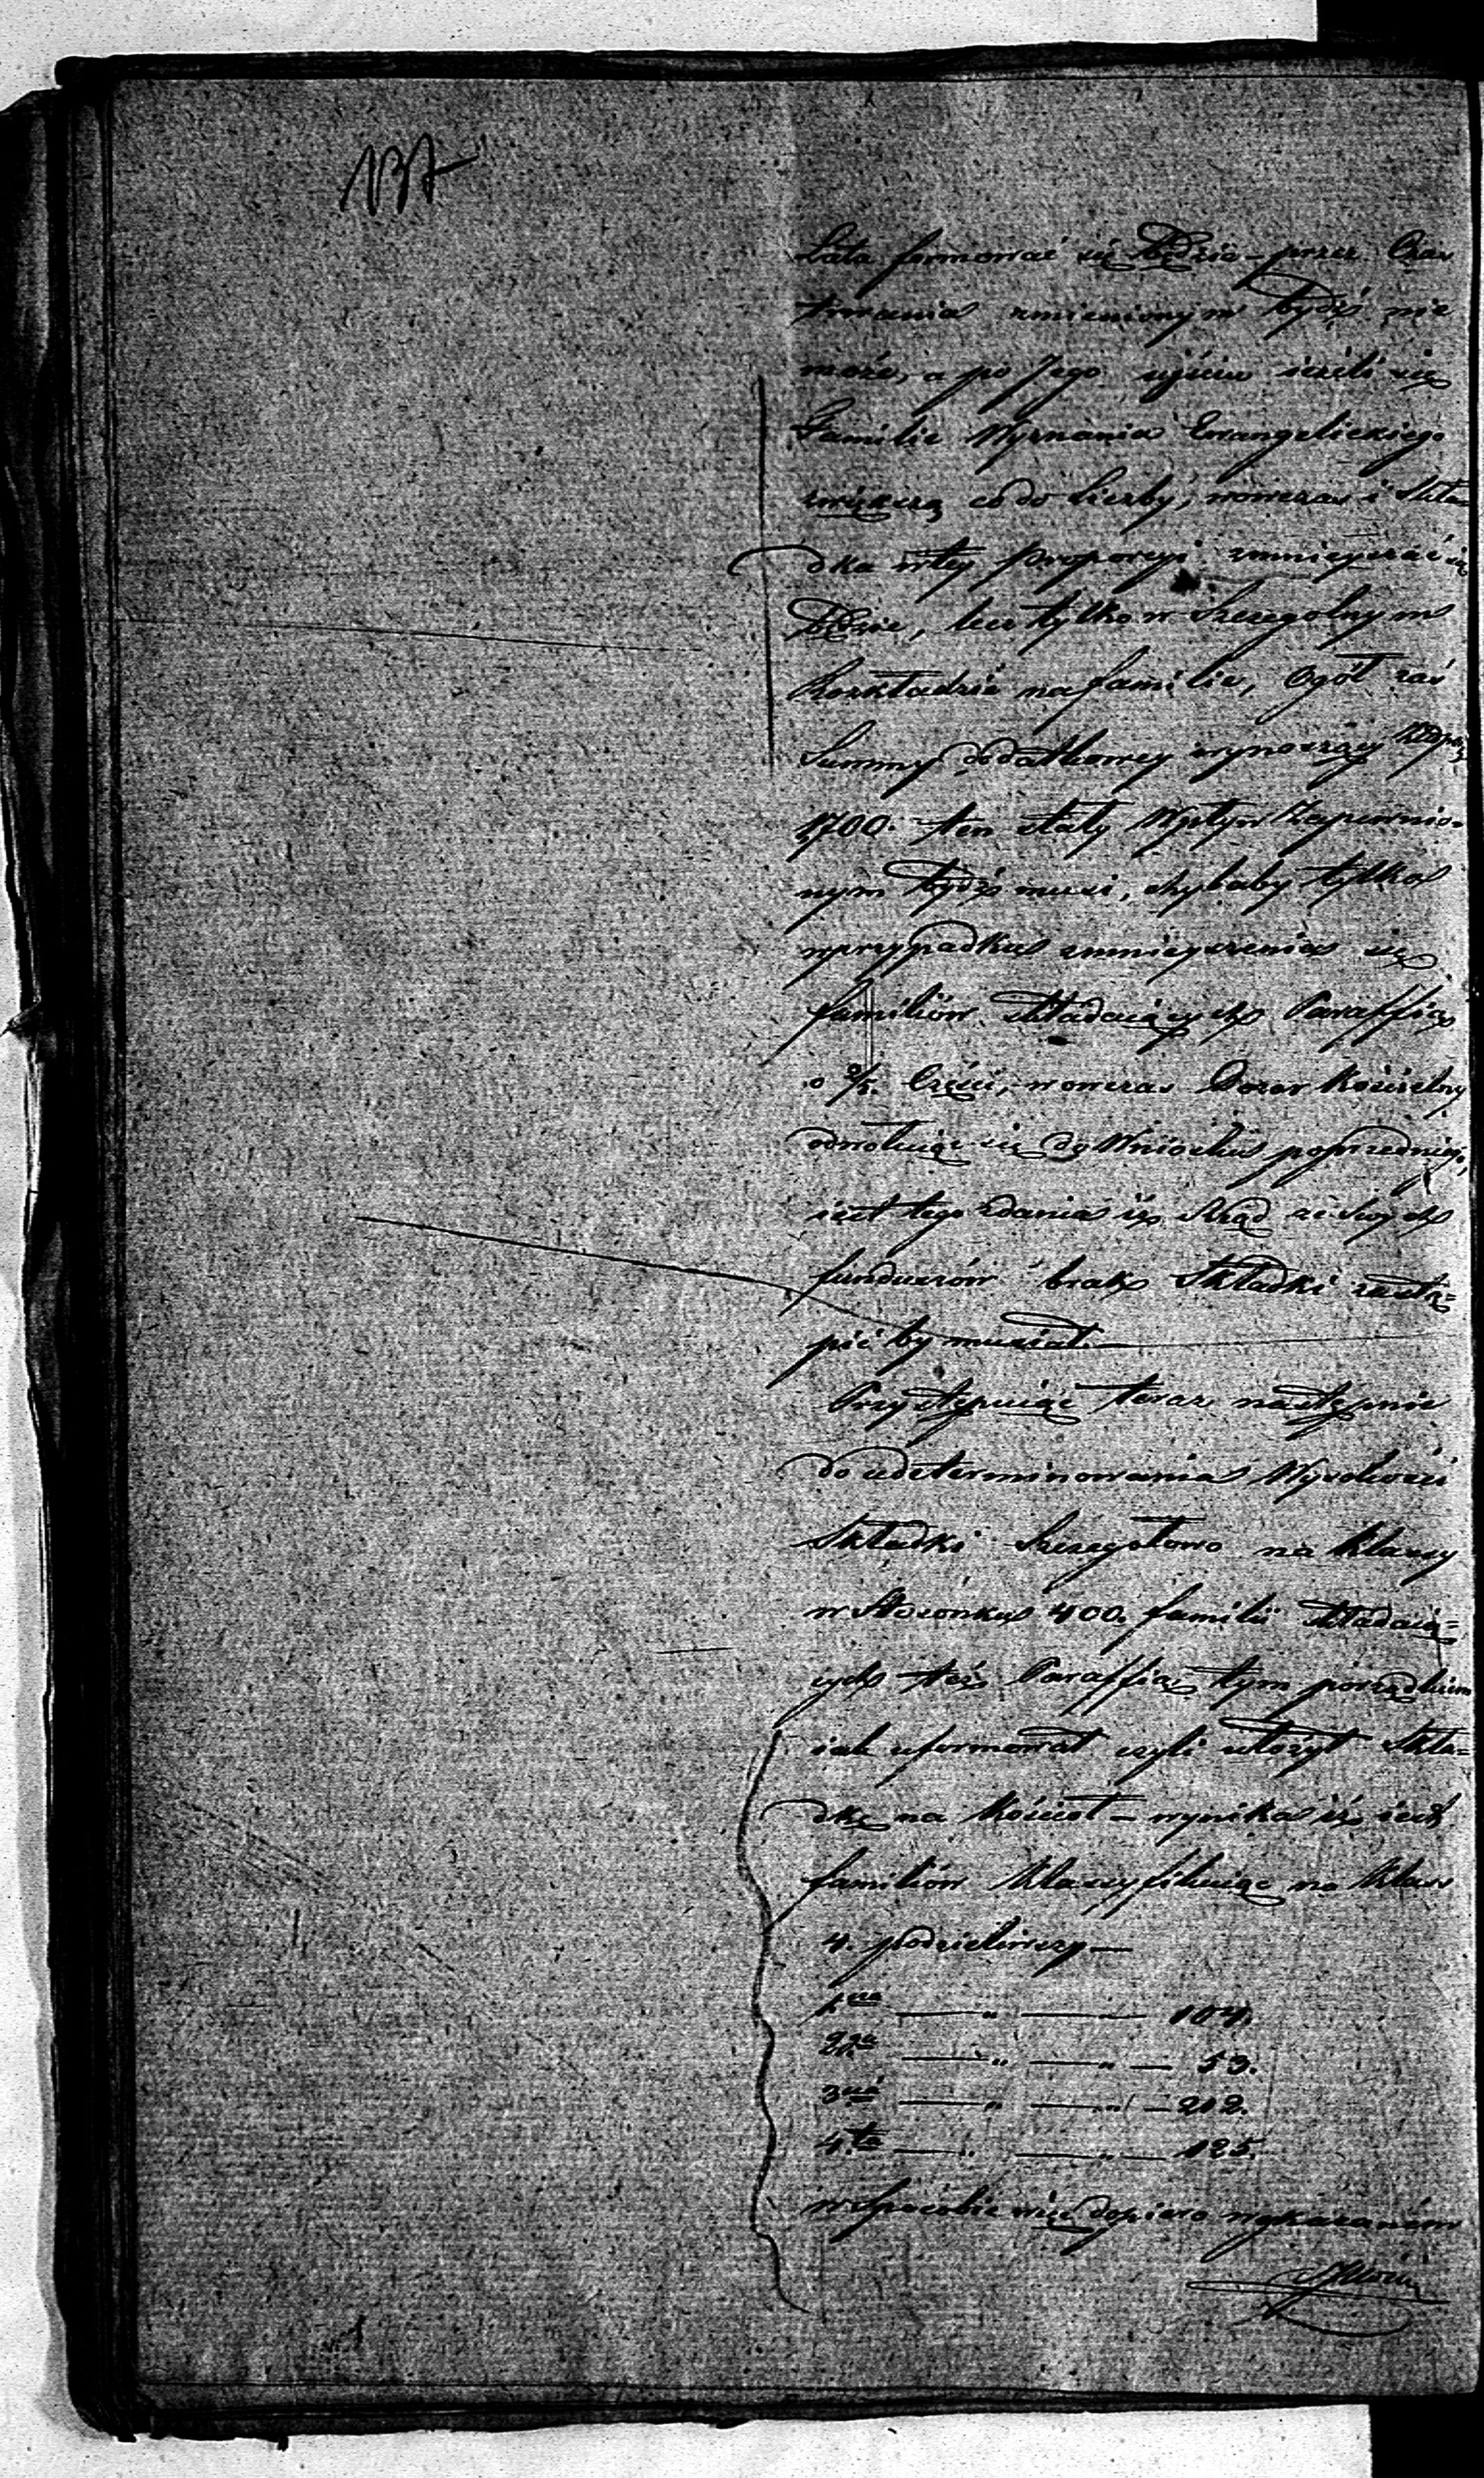 137
Lata formować się będzie – przez Czas
trwania zmienionym bydź nie
może, a po Jego ujściu ieżeli się
Familie Wyznania Ewangelickiego
zwiększą co do Liczby, wowczas i Skła=
dka w tey proporcyi zmnieyszać się
będzie, lecz tylko w Szczegolnym
Rozkładzie na familie, Ogół zaś
Summy dodatkowey wynoszący
1700. ten stały Wpływ Zapewnio=
nym bydź musi, chybaby tylko
w przypadku zmnieyszenia się
familiów składaiących Paraffią
o 2/5. Części, – wowczas Dozor Kościelny
odwołuiąc się do Wniosku poprzedniego,
iest tego zdania iż Rząd ze swych
funduszów brak Składki zastą=
pić by musiał. –
Przystępuiąc teraz następnie
do udeterminowania Wysokości
Składki Szczegułowo na Klassy
w Stosónku 400. familii składaią=
cych też Paraffią tym porządkiem
iak uformował czyli ułożył Skła=
dkę na Kościoł – wynika iż iest
familiów Klassyfikuiąc na Klass
4. podzieliwszy –
1sza — „ — 104.
2ga — „ — „ — 53.
3cia — „ — „ — 212.
4ta — „ — „ — 125.
w Sposobie więc dopiero wykazanem